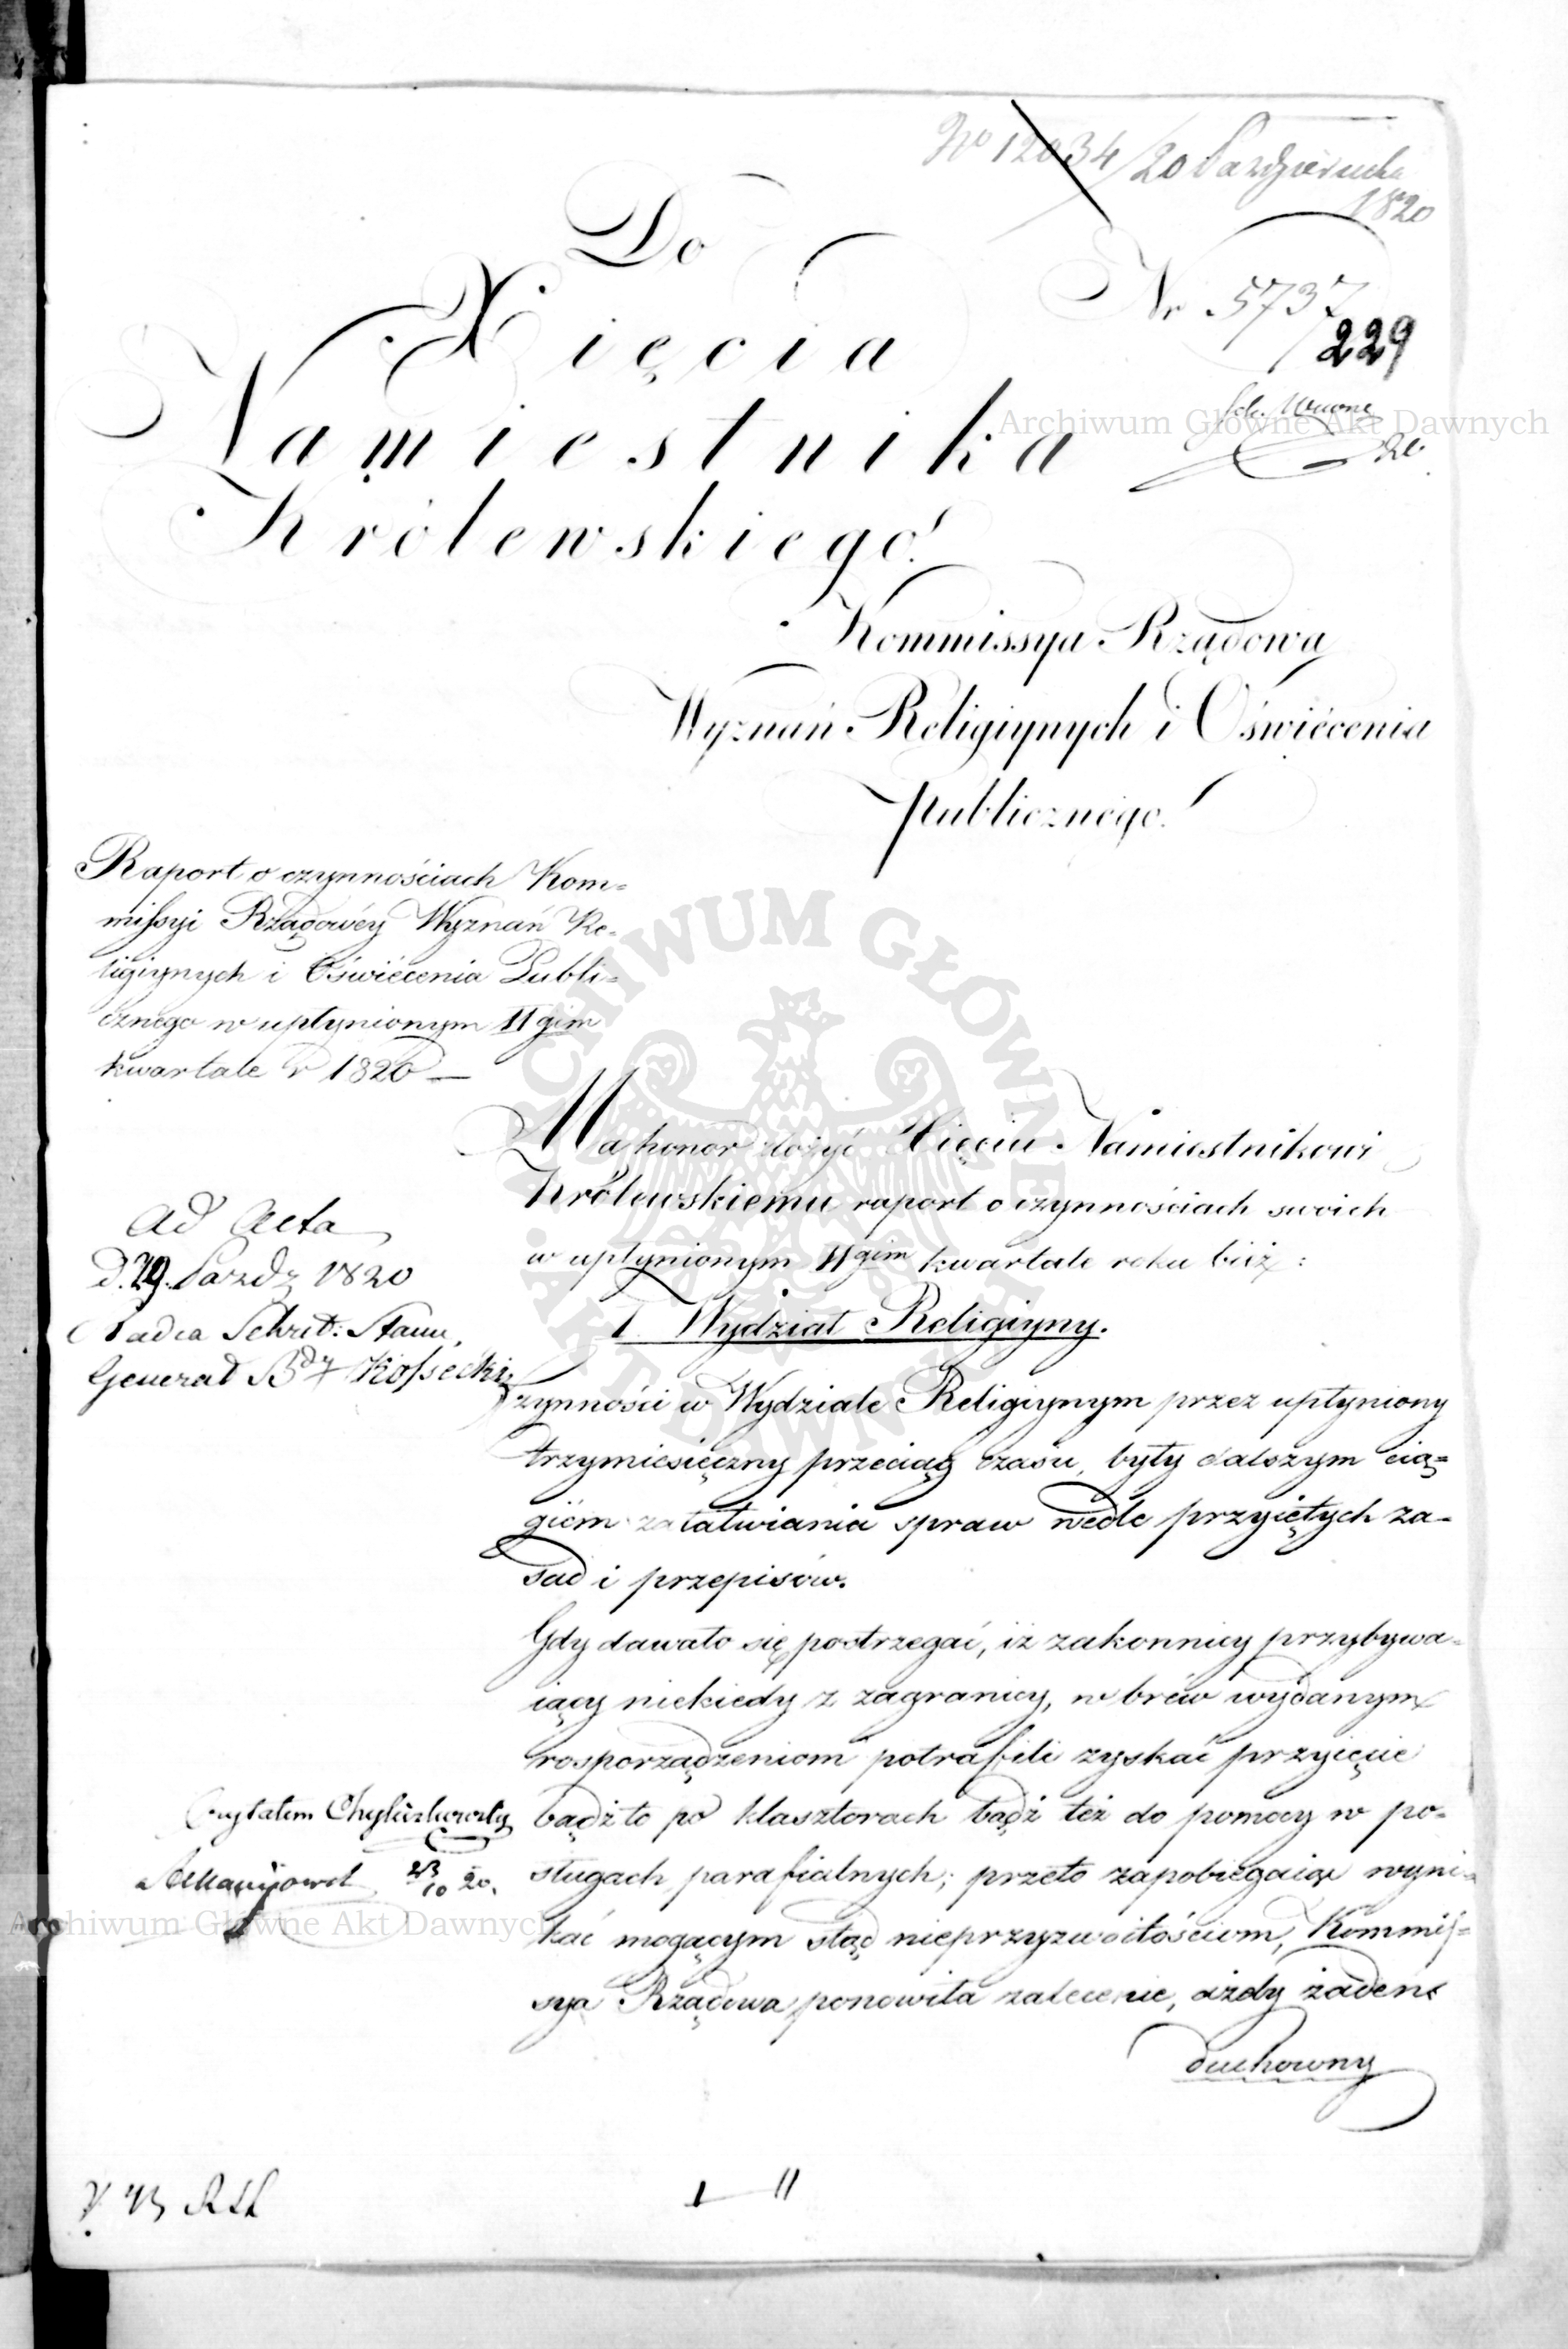 No 12034/20 Października
1820
Do
Xięcia
Namiestnika
Królewskiego!
Nr 5737
229
Kommissya Rządowa
Wyznań Religiynych i Oświécenia
Publicznégo!
Raport o czynnościach Kom=
missyi Rządowéy Wyznań Re=
ligiynych i Oświécenia Publi=
cznego w upłynionym IIgim
kwartale r 1820 —
Ma honor złożyć Xięciu Namiestnikowi
Królewskiemu raport o czynnościach swoich
w upłynionym IIgim kwartale roku bież:
I. Wydział Religiyny.
Ad Acta
d. 29. Paźdz 1820
Radca Sekret: Stanu,
Generał Bdy Kossecki
Czynności w Wydziale Religiynym przez upłyniony
trzymiesięczny przeciąg czasu, były dalszym cią=
giem załatwiania spraw wedle przyiętych za=
sad i przepisów.
Gdy dawało się postrzegać, iż zakonnicy przybywa=
iący niekiedy z zagranicy, w bréw wydanym
rosporządzeniom potrafili zyskać przyięcie
bądź to po klasztorach bądź też do pomocy w po=
sługach parafialnych; przeto zapobiegaiąc wyni=
kać mogącym stąd nieprzyzwoitościom, Kommis=
sya Rządowa ponowiła zalecenie, ażeby żaden
duchowny
Czytałem
23/10 20.
I — II
Archiwum Główne Akt Dawnych
Archiwum Główne Akt Dawnych
ARCHIWUM GŁÓWNE AKT DAWNYCH